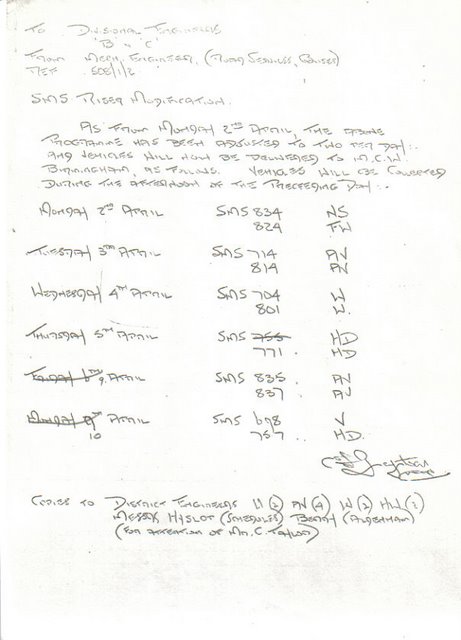 TO DIVISIONAL ENGINEERS
'B' & 'C'
FROM MECH. ENGINEER, (ROAD SERVICES, BUSES)
REF 508/1/2
SMS RISER MODIFICATION.
AS FROM MONDAY 2ND APRIL, THE ABOVE
PROGRAMME HAS BEEN ADJUSTED TO TWO PER DAY..
AND VEHICLES WILL NOW BE DELIVERED TO M.C.W.
BIRMINGHAM, AS FOLLOWS. VEHICLES WILL BE COLLECTED
DURING THE AFTERNOON OF THE PRECEEDING DAY..
MONDAY 2ND APRIL SMS 834 NS
824 FW
TUESDAY 3RD APRIL SMS 714 AV
814 AV
WEDNESDAY 4TH APRIL SMS 704 W
801 W.
THURSDAY 5TH APRIL SMS 755 HD
771. HD
FRIDAY 6TH 9. APRIL SMS 835. AV
837. AV
MONDAY 9TH APRIL SMS 678 V
10 767.. HD.
COPIES TO DISTRICT ENGINEERS (2) AV (4) W (2)
MESSRS HASLOT (SCHEDULES) (ALDENHAM)
(FOR ATTENTION OF MR. C. TAYLOR)